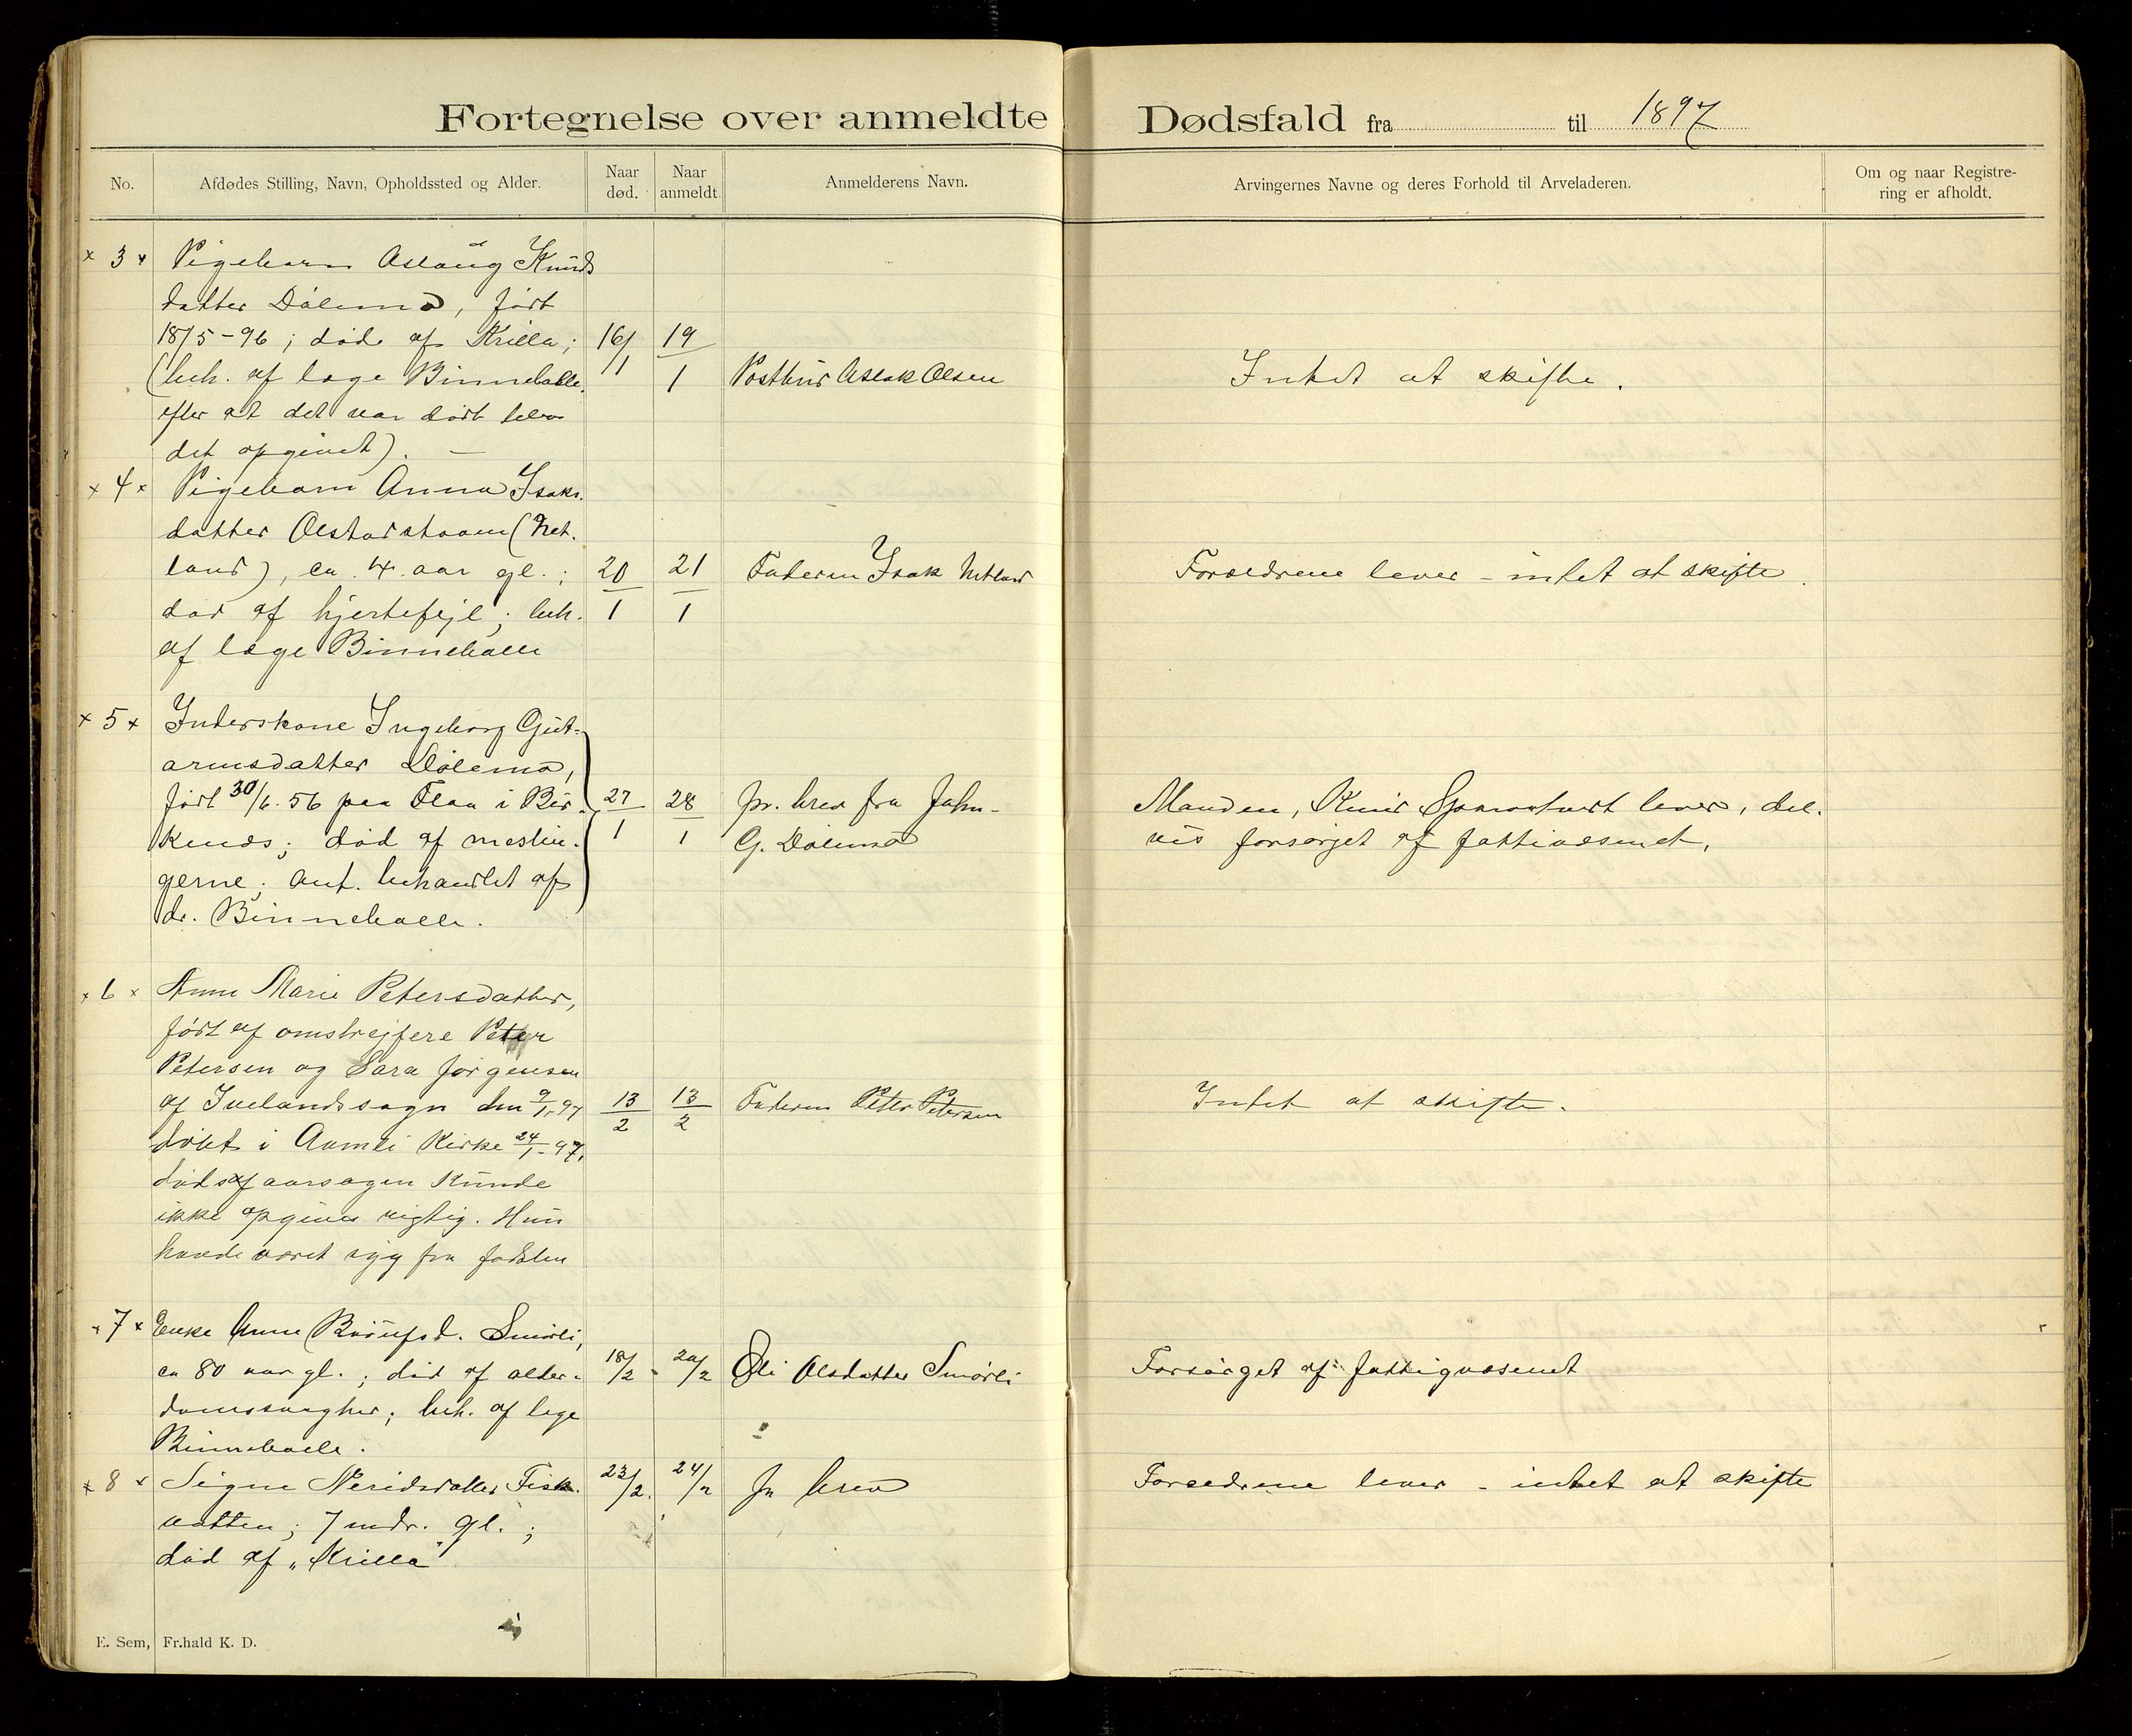 Fortegnelse over anmeldte Dødsfald fra til 1897
No.
Afdødes Stilling, Navn, Opholdssted og Alder.
Naar død.
Naar anmeldt
Anmelderens Navn.
Arvingernes Navne og deres Forhold til Arveladeren.
Om og naar Registre-
ring er afholdt.
× 3 × Pigebarn Aslaug Knuds
datter Dølemo, født
18/5-96; død af Krilla; 16/1 19/1
(beh. af læge Binneballe, Postbud Aslak Olsen Intet at skifte.
efter at det var dødt blev
det opgivet). —
× 4 × Pigebarn Anna Isaks.
datter (Net.
land), ca. 4 aar gl.; 20/1 21/1 Faderen Isak Netland Forældrene lever - intet at skifte.
død af hjertefejl; beh.
af læge Binneballe
× 5 × Inderskone Ingeborg Gut-
ormsdatter Dølemo,
født 30/6. 56 paa Flaa i Bir- 27/1 28/1 pr. brev fra John Manden, Knud lever, del.
kenæs; død af meslin- G. Dølemo vis forsørget af fattivæsenet.
gerne; ant. behandlet af
dr. Binneballe.
× 6 × Anne Marie Petersdatter,
født af omstrejfere Peter
Petersen og Sara Jørgensen
af Ivelandssogn den 9/1-97 13/2 13/2 Faderen Peter Petersen Intet at skifte.
døbt i Aamli Kirke 24/1-97.
dødsaarsagen kunde
ikke opgives rigtig. Hun
havde været syg fra fødselen
× 7 × Enke Anne Smørli,
ca 80 aar gl.; død af alder- 18/2 20/2 Oli Olsdatter Smørli Forsørget af fattigvæsenet
domssvaghed; beh. af læge
Binneballe.
× 8 × Signe Neridsdatter Fisk- 23/2. 24/2 pr brev Forældrene lever - intet at skifte
vatten; 7 mdr. gl.;
død af „Krilla"
E. Sem, Fr.hald K. D.